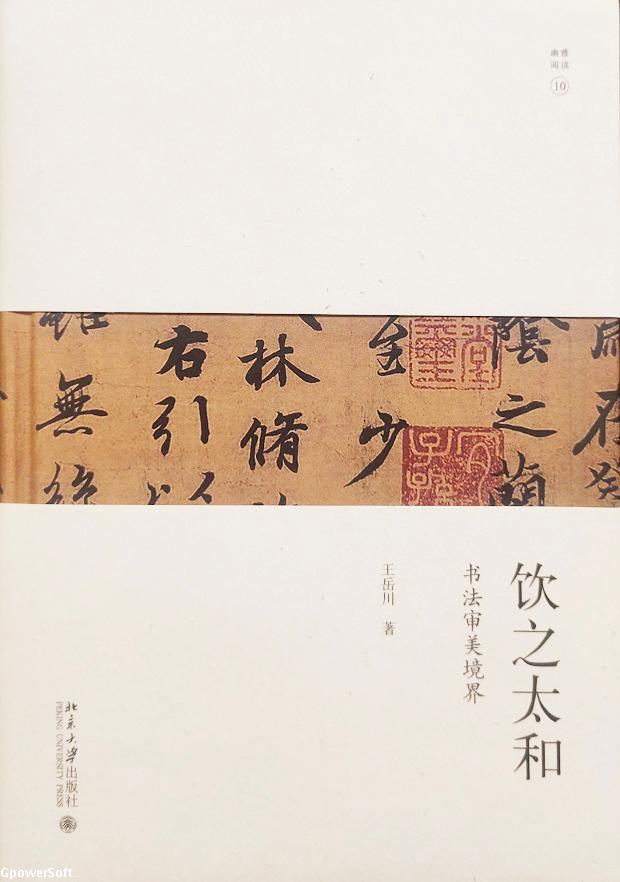 幽雅
阅读
10
在癸
陰之蘭
至少
林脩
右引以
雖無絲
饮之太和
书法审美境界
王岳川 著
北京大学出版社
PEKING UNIVERSITY PRESS
GpowerSoft